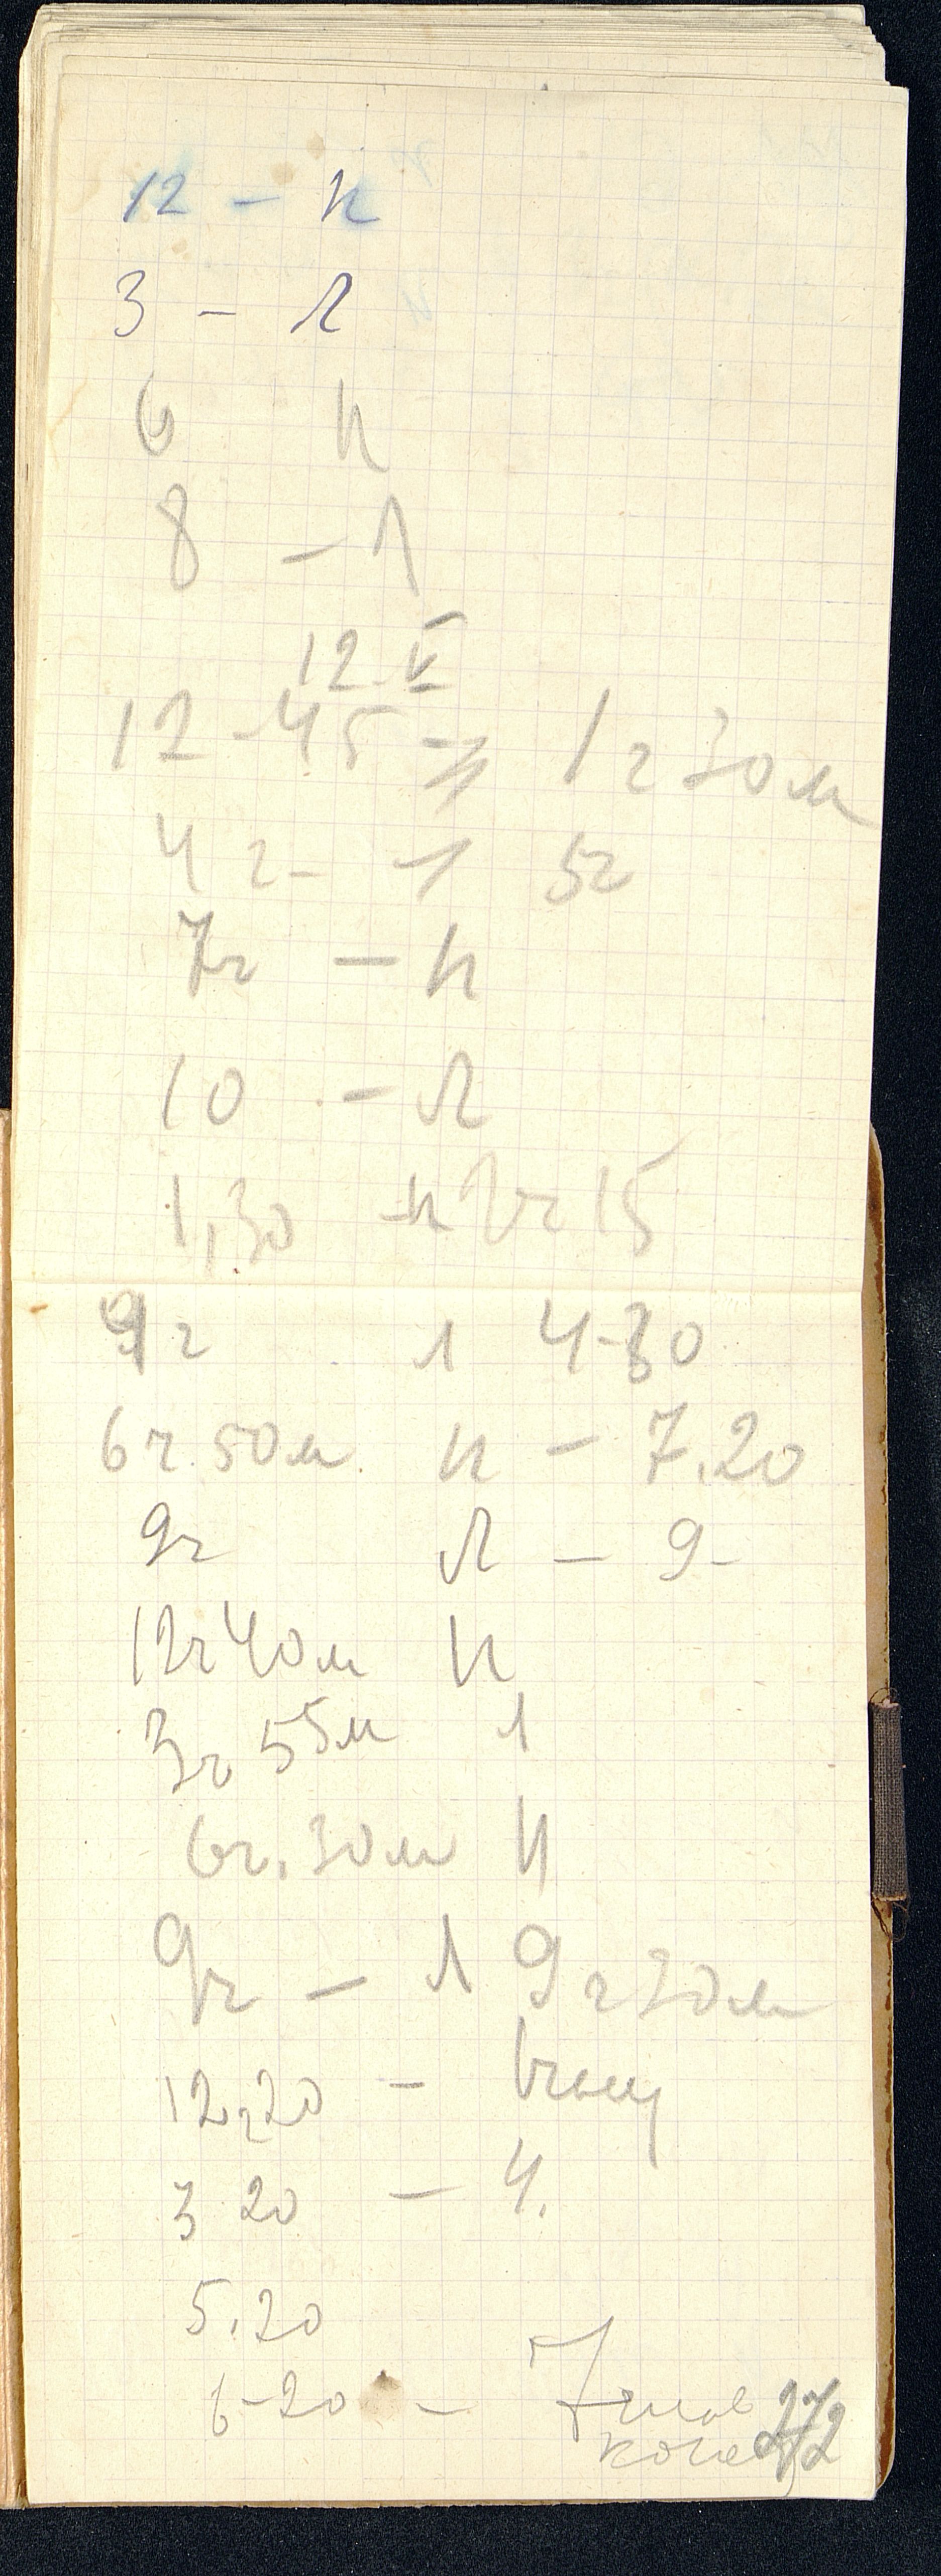 12 - к
3 - Л
6 к
8 - Л
12 V
12-45 - л 1 ч 30 м
4 ч - л 5ч
7ч - к
10 - Л
1,30 - к 2ч 15
ч л 4-30
6ч. 50м к - 7.20
9ч Л - 9-
12ч 40м к
3ч 55м л
6ч. 30м к
9ч - Л 9 ч 30м
12,20 -
3 20 - 4.
5.20
6-20 - 7
272